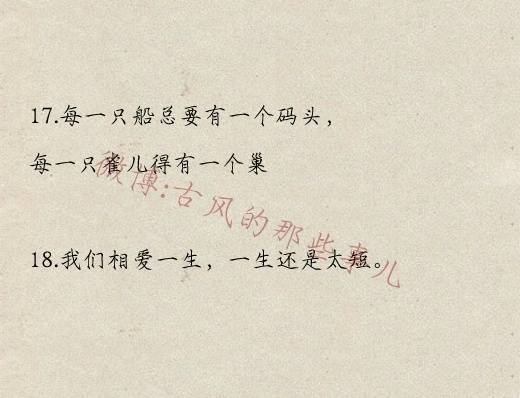 17.每一只船总要有一个码头，
每一只雀儿得有一个巢
微博:古风的那些事儿
18.我们相爱一生，一生还是太短。